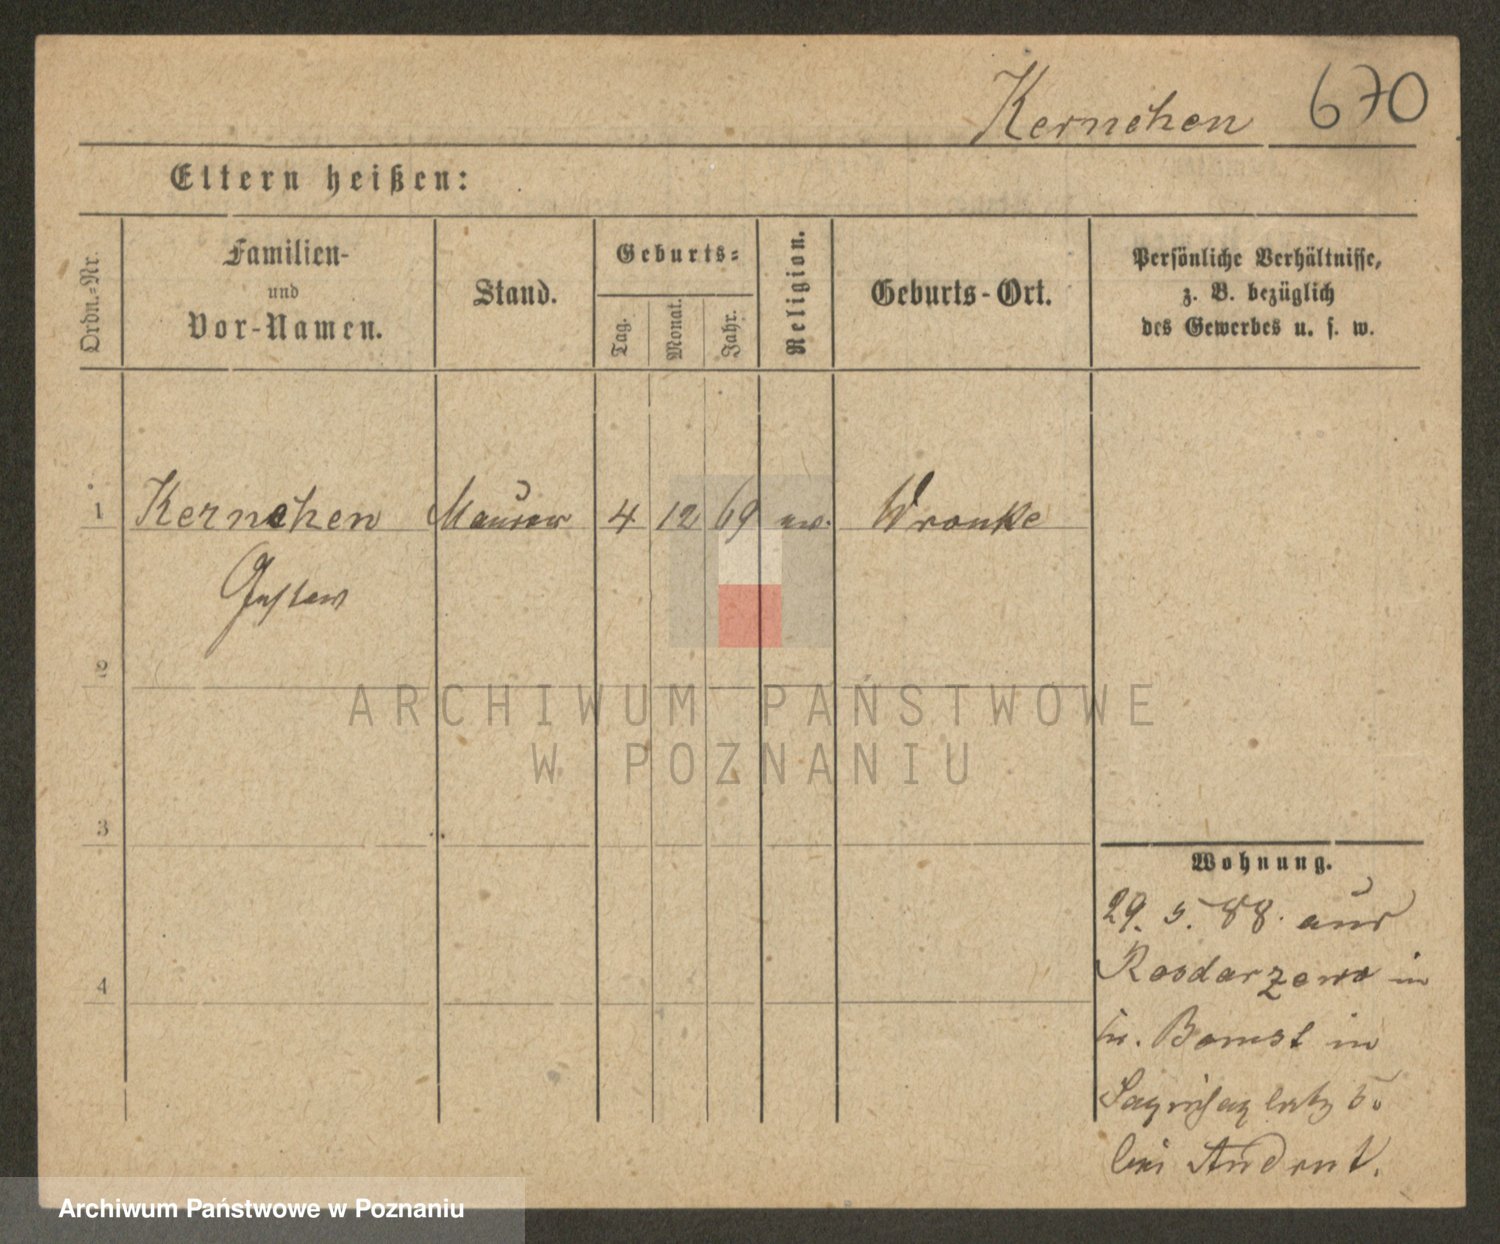 Kernchen 670
Eltern heißen:
Ordn.-Nr.
Familien-
und
Vor-Namen.
Stand.
Geburts-
Tag.
Monat.
Jahr.
Religion.
Geburts-Ort.
Persönliche Verhältnisse,
z. B. bezüglich
des Gewerbes u. s. w.
1 Kernchen Maurer 4 12 69 ev. Wronke
Gustav
2
3
4
Wohnung.
29. 5. 88. aus
Rosdarzewo in
Bomst in
Sapiehaplatz
bei Andrut.
ARCHIWUM PAŃSTWOWE
W POZNANIU
Archiwum Państwowe w Poznaniu